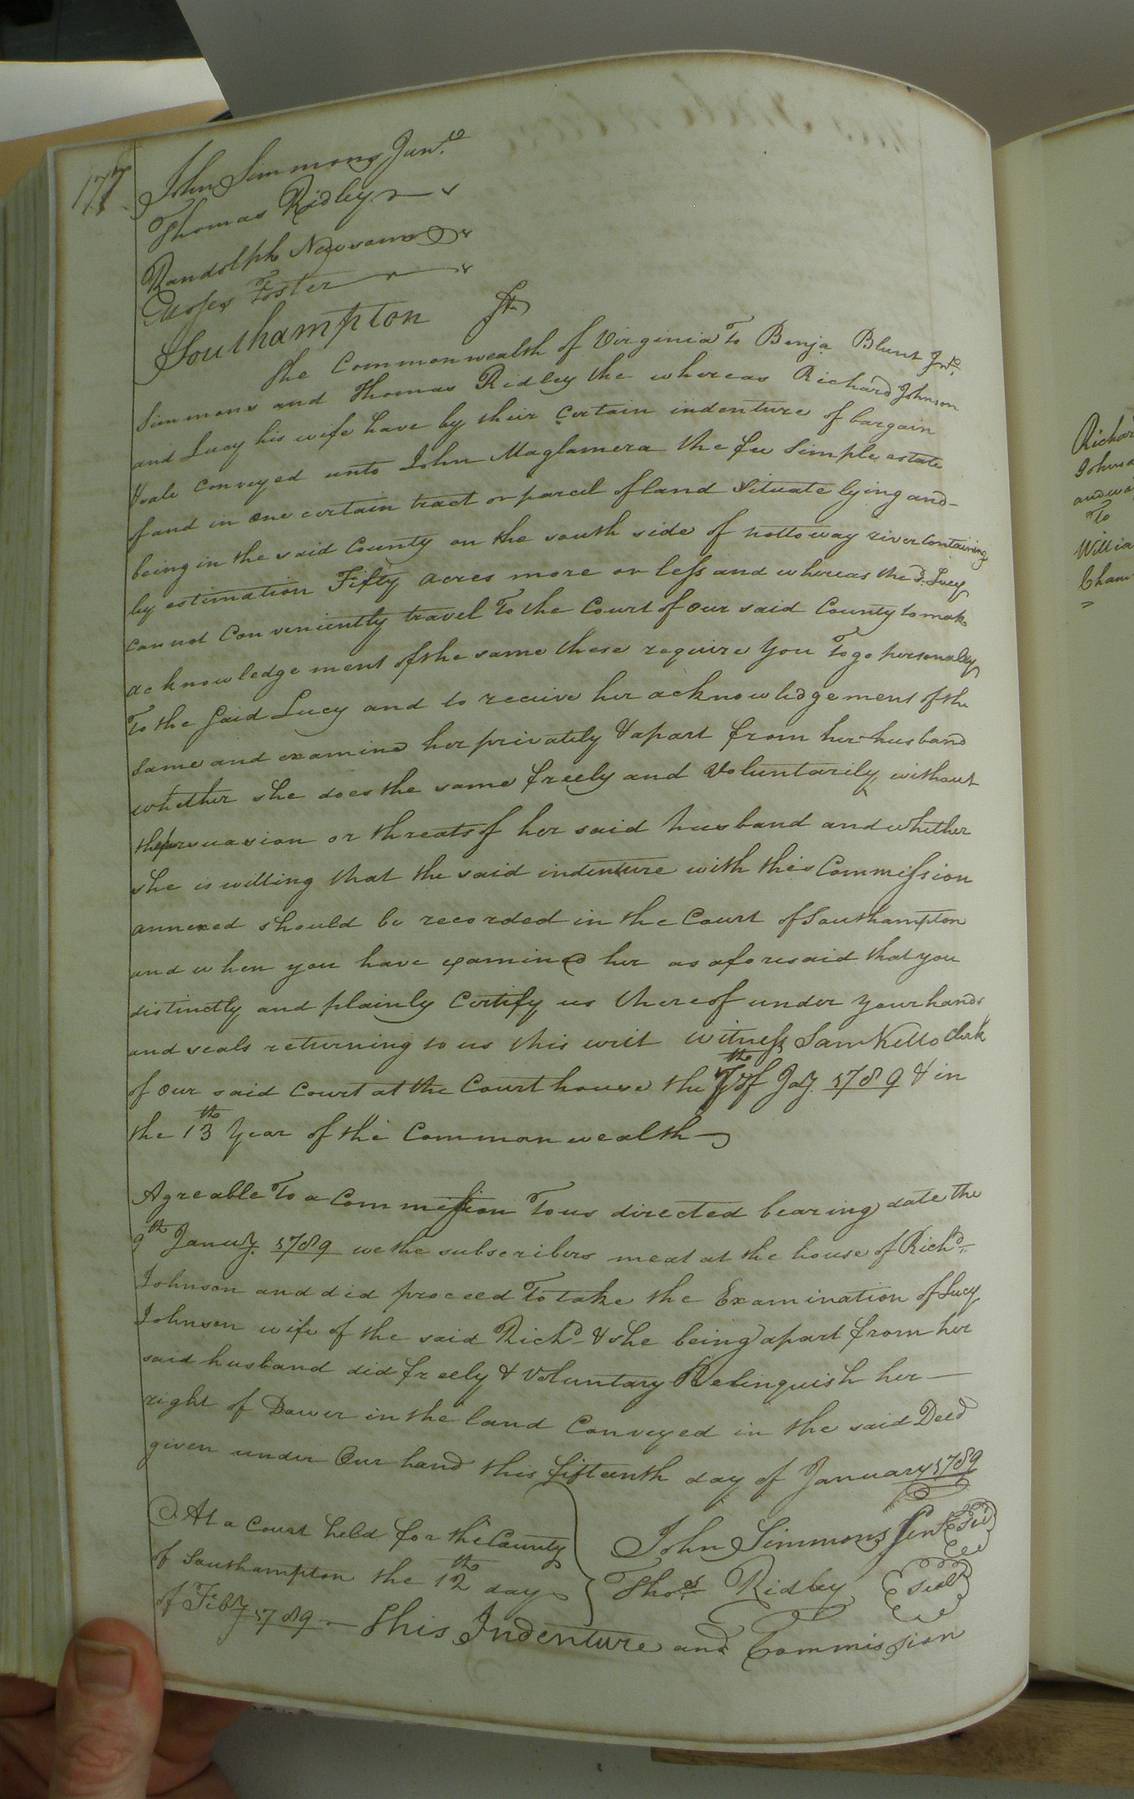 177
John Simmons Junr.
Thomas Ridley
Randolph Newsome
Moses Foster
Southampton Sct
The Commonwealth of Virginia To Benja Blunt Jno.
Simmons and Thomas Ridley the whereas Richard Johnson
and Lucy his wife have by their certain indenture of bargain
& sale conveyed unto John Maglamera the fee Simple estate
of and in one certain tract or parcel of land Situate lying and
being in the said County on the south side of nottoway river Containing
by estimation Fifty acres more or less and whereas the sd. Lucy
can not Conveniently travel To the Court of our said County to make
acknowledgement of the same these require you To go personally
To the Said Lucy and to receive her acknowledgement of the
same and examine her privately & apart from her husband
whether she does the same freely and Voluntarily without
the persuasion or threats of her said husband and whether
she is willing that the said indenture with this Commission
annexed should be recorded in the Court of Southampton
and when you have examined her as aforesaid that you
distinctly and plainly Certify us thereof under your hands
and seals returning to us this writ Witness Sam Kello Clerk
of our said Court at the Courthouse the 9th of Jay. 1789 & in
the 13th Year of the Commonwealth
Agreable To a Commission To us directed bearing date the
9th Januy. 1789 we the subscribers meat at the house of Richd.
Johnson and did proceed To take the Examination of Lucy
Johnson wife of the said Richd. & she being apart from her
said husband did freely & Voluntary Relinquish her
right of Dower in the land Conveyed in the said Deed
given under Our hand this fifteenth day of January 1789
At a Court held for the County
of Southampton the 12th day
of Feby 1789 This Indenture and Commission
John Simmons Junr Seal
Thos. Ridley Seal
Richar
Johns
and w
To
Willia
Cham